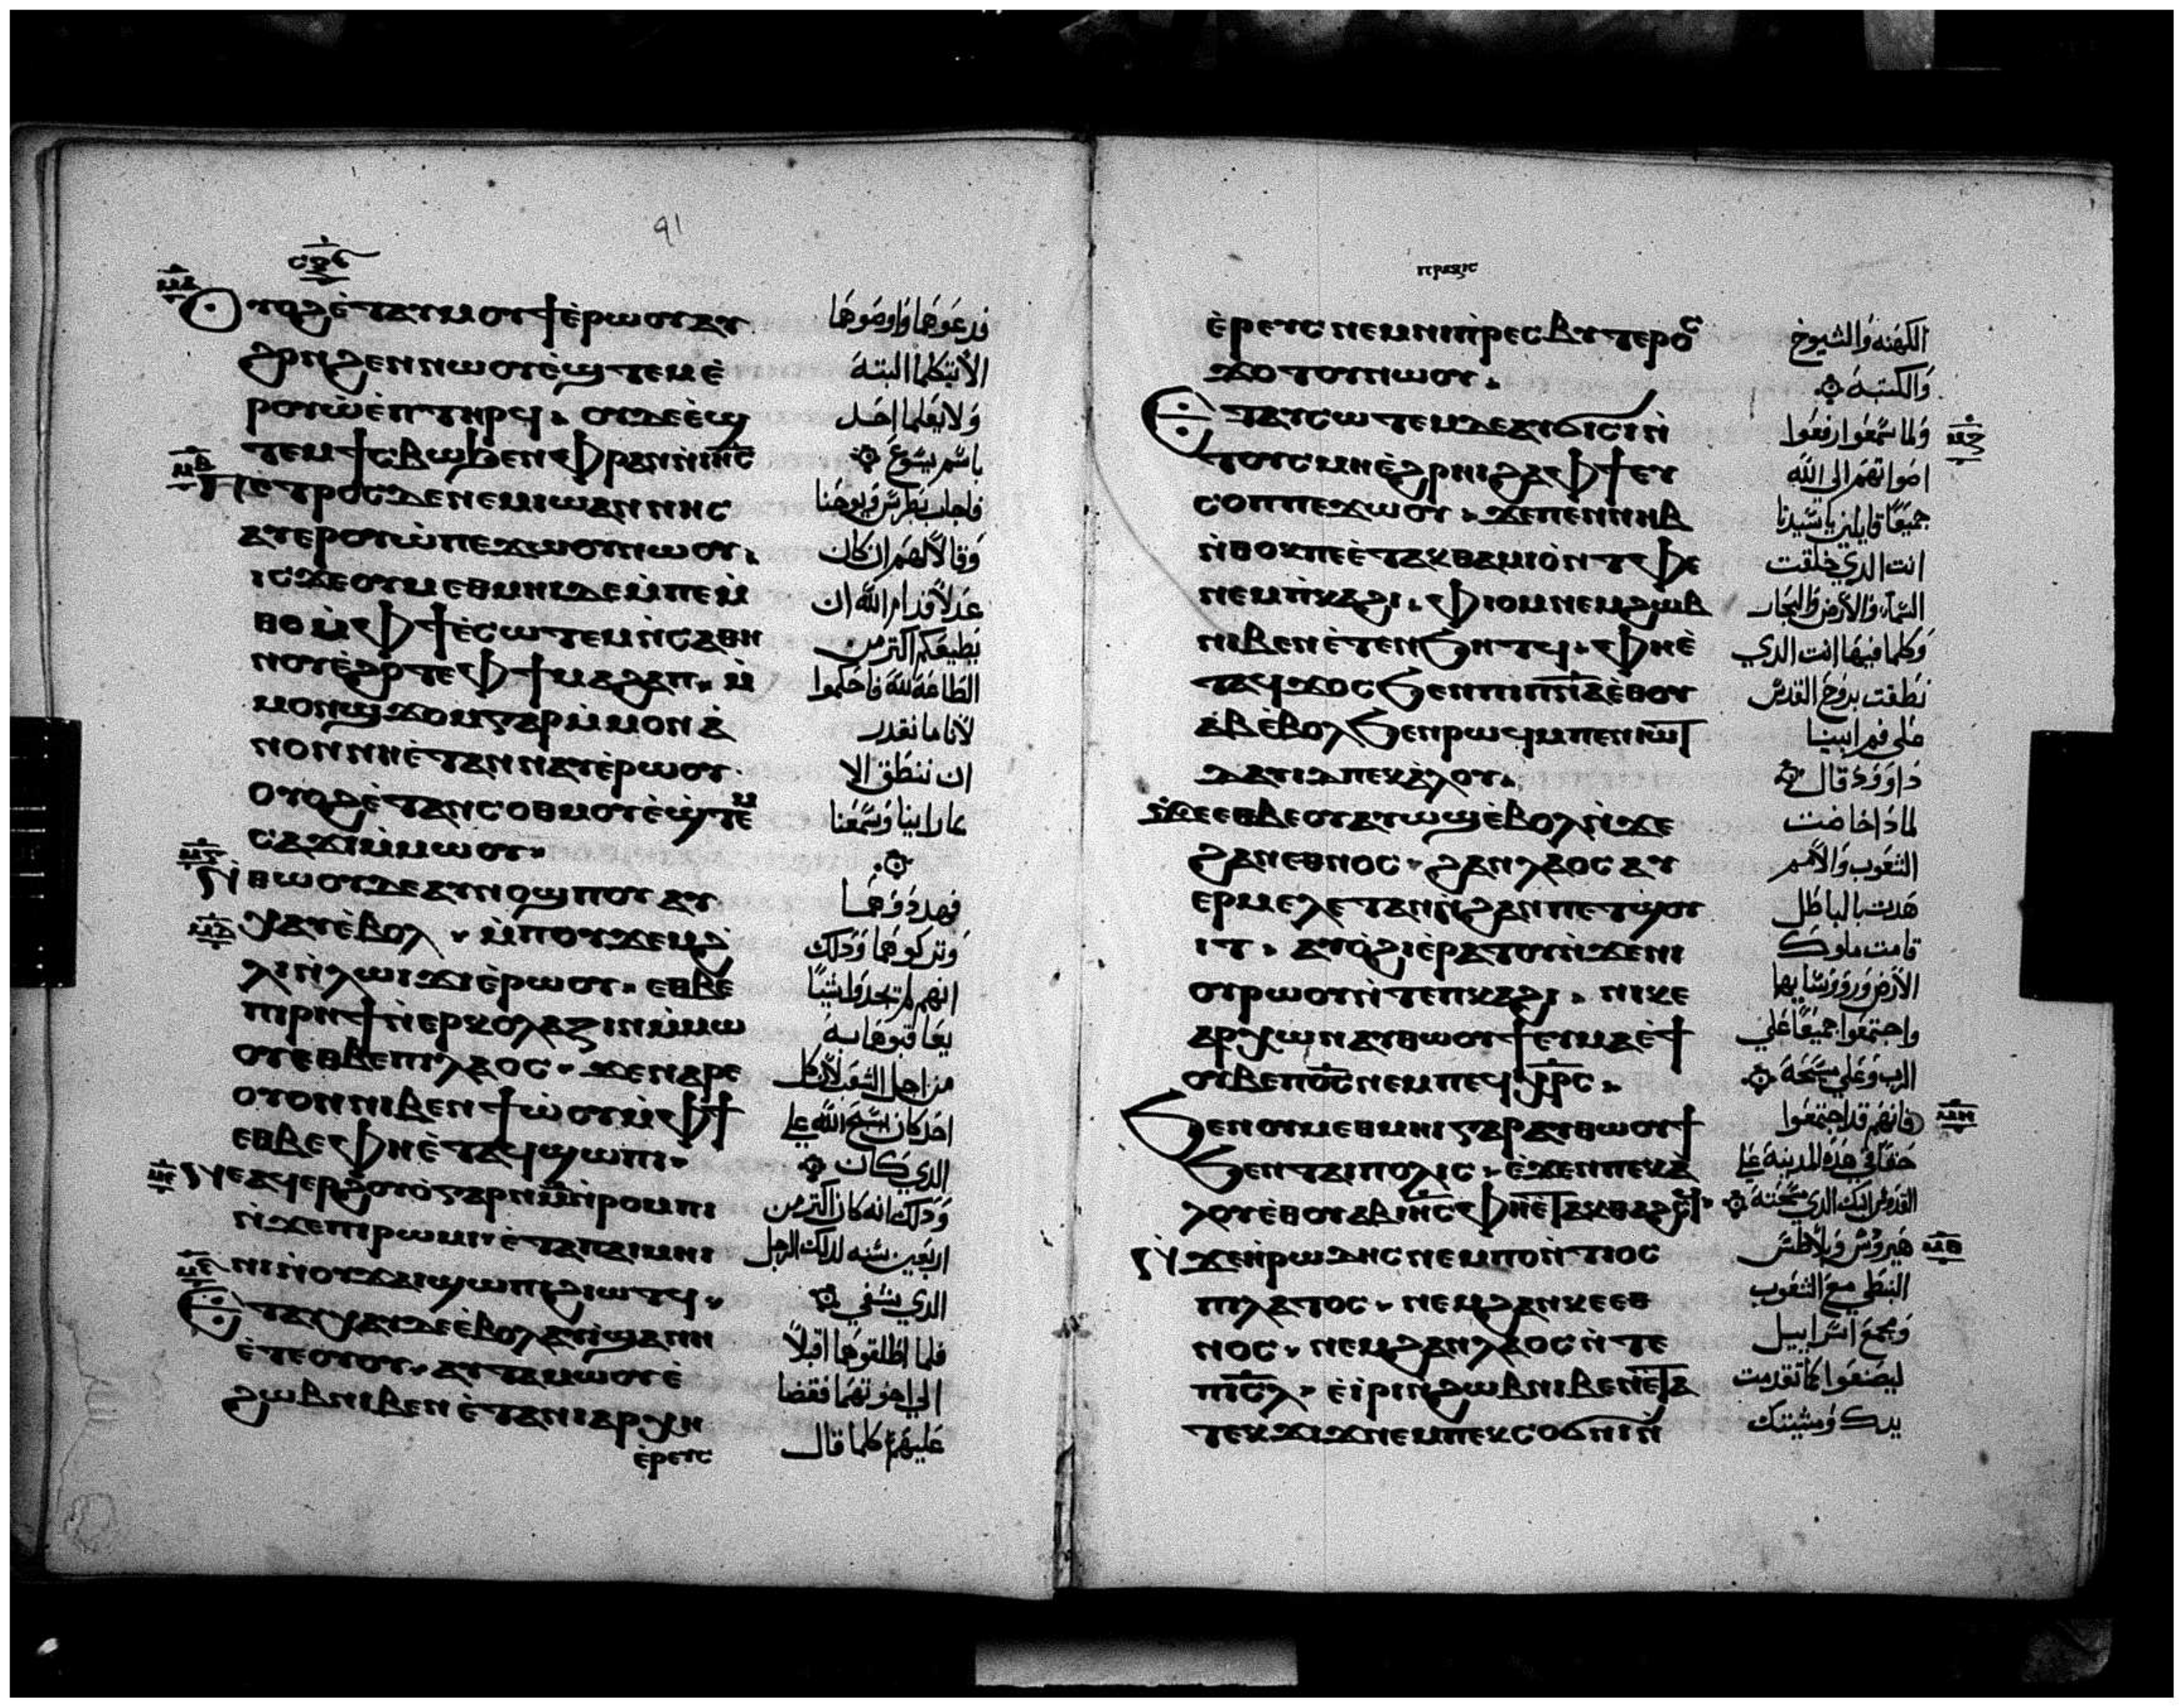 91
ⲟⲩⲟϩ ⲉ̀ⲧⲁⲩⲙⲟⲩϯ ⲉ̀ⲣⲱⲟⲩ ⲁⲩ
ϩⲣⲏϩⲉⲛ ⲛⲱⲟⲩ ⲉ̀ϣⲧⲉⲙⲉ̀
ⲣⲟⲩⲱ̀ ⲉ̀ⲡⲧⲏⲣϥ. ⲟⲩⲇⲉ ⲉ̀ϣ
ⲧⲉⲙϯⲥⲃⲱ ϧⲉⲛ ⲫⲣⲁⲛ ⲛ̀ⲓⲏ̅ⲥ̅
ⲡⲉⲧⲣⲟⲥ ⲇⲉ ⲛⲉⲙ ⲓⲱⲁⲛⲛⲏⲥ
ⲁⲩⲉⲣⲟⲩⲱ̀ ⲡⲉϫⲱⲟⲩ ⲛⲱⲟⲩ.
ⲓⲥϫⲉ ⲟⲩⲙⲉⲑⲙⲏⲓ ⲇⲉ ⲙ̀ⲡⲉⲙ̀
ⲑⲟ ⲙ̀ⲫϯ ⲉ̀ⲥⲱⲧⲉⲙ ⲛ̀ⲥⲁⲑⲏ
ⲛⲟⲩ ⲉ̀ϩⲟⲧⲉ ⲫϯ ⲙⲁϩⲁⲡ. ⲙ̀
ⲙⲟⲛϣϫⲟⲙ ⲅⲁⲣ ⲙ̀ⲙⲟⲛ ⲁ̀
ⲛⲟⲛ ⲛⲏⲉ̀ⲧⲁⲛⲛⲁⲩ ⲉ̀ⲣⲱⲟⲩ
ⲟⲩⲟϩ ⲉ̀ⲧⲁⲛⲥⲟⲑⲙⲟⲩ ⲉ̀ϣⲧⲉⲙ
ⲥⲁϫⲓ ⲙ̀ⲙⲱⲟⲩ.
ⲛ̀ⲑⲱⲟⲩ ⲇⲉ ⲁⲩⲛⲟϣⲡⲟⲩ ⲁⲩ
ⲭⲁⲩ ⲉ̀ⲃⲟⲗ. ⲙ̀ⲡⲟⲩϫⲉⲙϩ
ⲗⲓ ⲛ̀ⲗⲱⲓϫⲓ ⲉ̀ⲣⲱⲟⲩ. ⲉⲑⲃⲉ
ⲡⲓⲣⲏϯ ⲛ̀ⲉⲣⲕⲟⲗⲁⲍⲓⲛ ⲙ̀ⲙⲱ
ⲟⲩ ⲉⲑⲃⲉ ⲡⲓⲗⲁⲟⲥ. ϫⲉ ⲛⲁⲣⲉ
ⲟⲩⲟⲛ ⲛⲓⲃⲉⲛ ϯⲱ̀ⲟⲩ ⲙ̀ⲫϯ
ⲉⲑⲃⲉ ⲫⲏⲉ̀ⲧⲁϥϣⲱⲡⲓ.
ⲛⲉⲁϥⲉⲣϩⲟⲩⲟ̀ ⲅⲁⲣ ⲛ̀ⲙ̅ ⲛ̀ⲣⲟⲙⲡⲓ
ⲛ̀ϫⲉ ⲡⲓⲣⲱⲙⲓ ⲉ̀ⲧⲁ ⲡⲁⲓⲙⲏⲓ
ⲛⲓ ⲛ̀ⲟⲩϫⲁⲓ ϣⲱⲡⲓ ϩⲓⲱⲧϥ.
ⲉⲧⲁⲩⲭⲁⲩ ⲇⲉ ⲉ̀ⲃⲟⲗ ⲁⲩⲓ̀ ϣⲁ ⲛⲏ
ⲉ̀ⲧⲉ ⲟⲩⲟⲩ. ⲁⲩⲧⲁⲙⲱⲟⲩ ⲉ̀
ϩⲱⲃ ⲛⲓⲃⲉⲛ ⲉ̀ⲧⲁ ⲛⲓⲁⲣⲭⲏ
ⲉ̀ⲣⲉⲩⲥ
فدعوهما واوصوهما
الا يتكلما البتة
ولا يعلما احد
باسم يسوع
فاجاب بطرس ويوحنا
وقالا لهم ان كان
عدلا قدام الله ان
نطيعكم اكثر من
الطاعة لله فاحكموا
لانا ما نقدر
ان ننطق الا
عاراينا وسمعنا
فهددوهما
وتركوهما وذلك
انهم لم يجدوا شيئا
يعاقبوهما به
من اجل الشعب لان كل
احد كان يسبح الله علي
الدي كان
وذلك انه كان اكثر من
اربعين سنه لدلك الرجل
الدي شفي
فلما اطلقوهما اقبلا
الي اخوتهما فقصا
عليهم كلما قال
ⲡⲣⲁⲝⲓⲥ
ⲉ̀ⲣⲉⲩⲥ ⲛⲉⲙ ⲛⲓⲡⲣⲉⲥⲃⲩⲧⲉⲣⲟⲥ
ϫⲟⲧⲟⲩ ⲛⲱⲟⲩ.
ⲉⲧⲁⲩⲥⲱⲧⲉⲙ ⲇⲉ ⲁⲩϭⲓⲥⲓ ⲛ̀
ⲧⲟⲩⲥⲙⲏ ⲉ̀ϩⲣⲏⲓ ϩⲁ ⲫϯ ⲉⲩ
ⲥⲟⲡ ⲡⲉϫⲱⲟⲩ. ϫⲉ ⲡⲉⲛⲛⲏⲃ
ⲛ̀ⲑⲟⲕ ⲡⲉ ⲉ̀ⲧⲁⲕⲑⲁⲙⲓⲟ̀ ⲛ̀ⲧⲫⲉ
ⲛⲉⲙ ⲡ̀ⲕⲁϩⲓ. ⲫⲓⲟⲙ ⲛⲉⲙ ϩⲱⲃ
ⲛⲓⲃⲉⲛ ⲉ̀ⲧⲉⲛϧⲏⲧϥ. ⲫⲏⲉ̀
ⲧⲁϥϫⲟⲥ ϧⲉⲛ ⲡⲓⲡ̅ⲛ̅ⲁ̅ ⲉ̀ⲑⲟⲩ
ⲁⲃ ⲉ̀ⲃⲟⲗ ϧⲉⲛ ⲣⲱϥ ⲙ̀ⲡⲉⲛⲓⲱⲧ
ⲇⲁⲩⲓⲇ ⲡⲉⲕⲁ̀ⲗⲟⲩ.
ϫⲉ ⲉⲑⲃⲉⲟⲩ ⲁⲩⲱϣ ⲉ̀ⲃⲟⲗ ⲛ̀ϫⲉ
ϩⲁⲛⲉⲑⲛⲟⲥ. ϩⲁⲛⲗⲁⲟⲥ ⲁⲩ
ⲉⲣⲙⲉⲗⲉⲧⲁⲛ ⲛ̀ϩⲁⲛⲡⲉⲧϣⲟⲩ
ⲓⲧ. ⲁⲩⲟ̀ϩⲓ ⲉ̀ⲣⲁⲧⲟⲩ ⲛ̀ϫⲉ ⲛⲓ
ⲟⲩⲣⲱⲟⲩ ⲛ̀ⲧⲉ ⲡⲕⲁϩⲓ. ⲛⲓⲕⲉ
ⲁⲣⲭⲱⲛ ⲁⲩⲑⲱⲟⲩϯ ⲉⲩⲙⲁ ⲉ̀ϯ
ⲟⲩⲃⲉ ⲡϭ̅ⲥ̅ ⲛⲉⲙ ⲡⲉϥⲭ̅ⲣ̅ⲥ̅.
ϧⲉⲛ ⲟⲩⲙⲉⲑⲙⲏⲓ ⲅⲁⲣ ⲁⲩⲑⲱⲟⲩϯ
ϧⲉⲛ ⲧⲁⲓⲡⲟⲗⲓⲥ. ⲉ̀ϫⲉⲛ ⲡⲉⲕⲁ̀
ⲗⲟⲩ ⲉ̀ⲑⲟⲩⲁⲃ ⲓⲏ̅ⲥ̅ ⲫⲏⲉ̀ⲧⲁⲕⲑⲁϩⲥϥ.
ⲛ̀ϫⲉ ⲏ̀ⲣⲱⲇⲏⲥ ⲛⲉⲙ ⲡⲟⲛⲧⲓⲟⲥ
ⲡⲓⲗⲁⲧⲟⲥ. ⲛⲉⲙ ϩⲁⲛⲕⲉⲉⲑ
ⲛⲟⲥ. ⲛⲉⲙ ϩⲁⲛⲗⲁⲟⲥ ⲛ̀ⲧⲉ
ⲡⲓⲥ̅ⲗ̅. ⲉ̀ⲓ̀ⲣⲓ ⲛ̀ϩⲱⲃ ⲛⲓⲃⲉⲛ ⲉ̀ⲧⲁ
ⲧⲉⲕϫⲓϫ ⲛⲉⲙ ⲡⲉⲕⲥⲟϭⲛⲓ ⲛ̀
الكهنه والشيوخ
والكتبه
ولما سمعوا رفعوا
اصواتهم الي الله
جميعا قايلين يا سيدنا
انت الدي خلقت
السماء والارض والبحار
وكلما فيها انت الدي
نطقت بروح القدس
علي فم ابينا
داوود قال
لماذا ضاجت
الشعوب والامم
هدت بالباطل
قامت ملوك
الارض ورووسايها
واجتمعوا جميعا علي
الرب وعلي مسيحه
فانهم قد اجتمعوا
حقا في هذه المدينة علي
القدوس ابنك الدي مسحته
هيرودس وبيلاطس
النبطي مع الشعوب
ومجمع اسراييل
ليصنعوا كما تقدمت
يدك ومشيتك